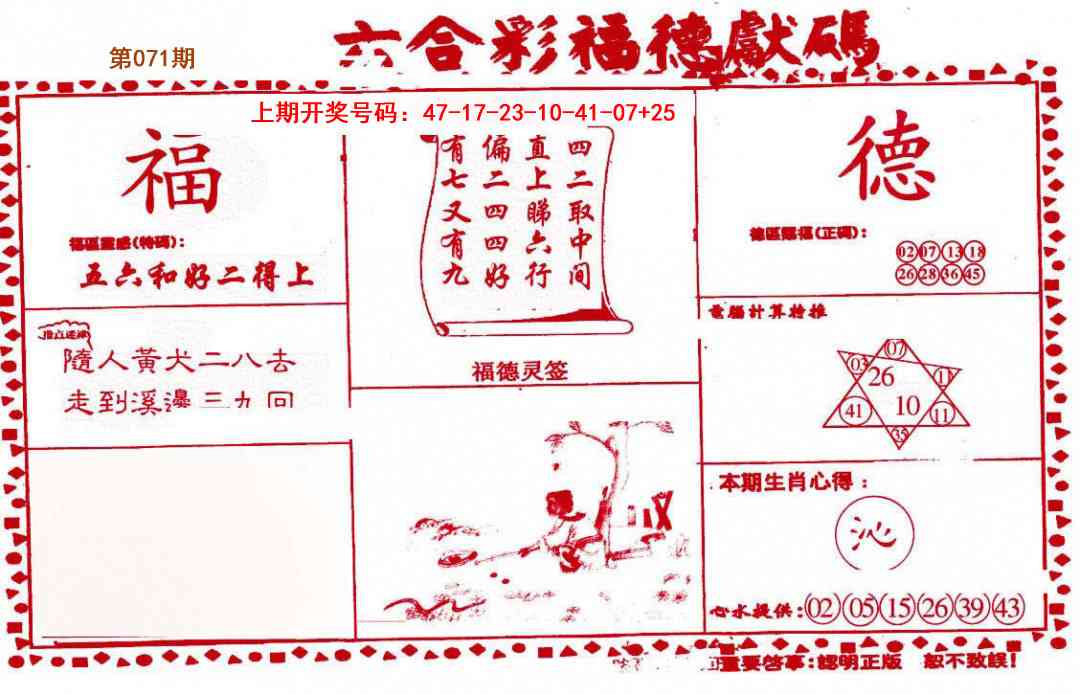 六合彩福德獻碼
第071期
上期开奖号码：47-17-23-10-41-07+25
福
福區靈感(特碼)：
五六和好二得上
隨人黃犬二八去
走到溪邊三九回
四二取中间
直上睇六行
偏二四四好
有七又有九
福德灵签
德
德區賜福(正碼)：
02 07 13 18
26 28 36 45
電腦計算特推
07
03
26
41
10
11
35
本期生肖心得：
沁
心水提供：02 05 15 26 39 43
重要啓事：認明正版 恕不致誤！